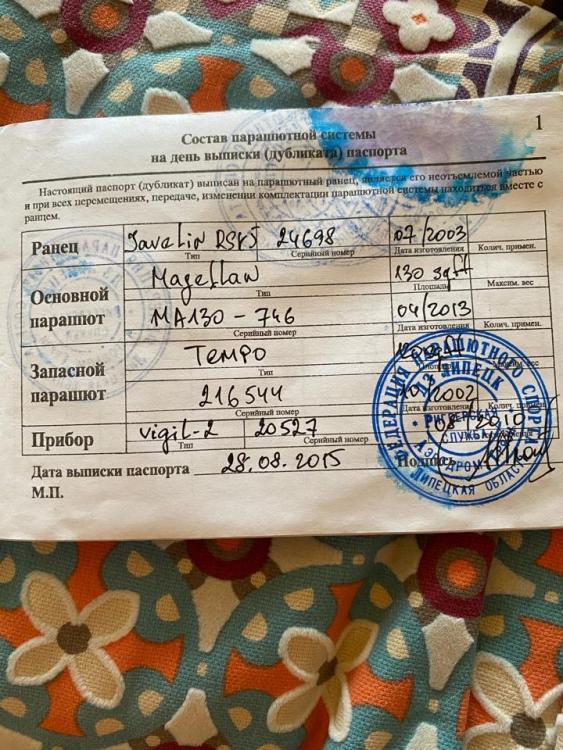 1
Состав парашютной системы
на день выписки (дубликата) паспорта
Настоящий паспорт (дубликат) выписан на парашютный ранец, является его неотъемлемой частью
и при всех перемещениях, передаче, изменении комплектации парашютной системы находится вместе с
ранцем.
Ранец Javelin RSK5 24698 07/2003
Тип Серийный номер Дата изготовления Колич. примен.
Основной парашют Magellan 130 sqft
Тип Площадь Максим. вес
MA130-746 04/2013
Серийный номер Дата изготовления Колич. примен.
Запасной парашют Tempo
Тип
216544 /2002
Серийный номер Дата изготовления Колич.
Прибор vigil-2 20527 08/2010
Тип Серийный номер
Дата выписки паспорта 28.08.2015
М.П.
ФЕДЕРАЦИЯ ПАРАШЮТНОГО СПОРТА
ЛИПЕЦК
СЛУЖБА
АЭРОДРОМ
ЛИПЕЦКАЯ ОБЛАСТЬ